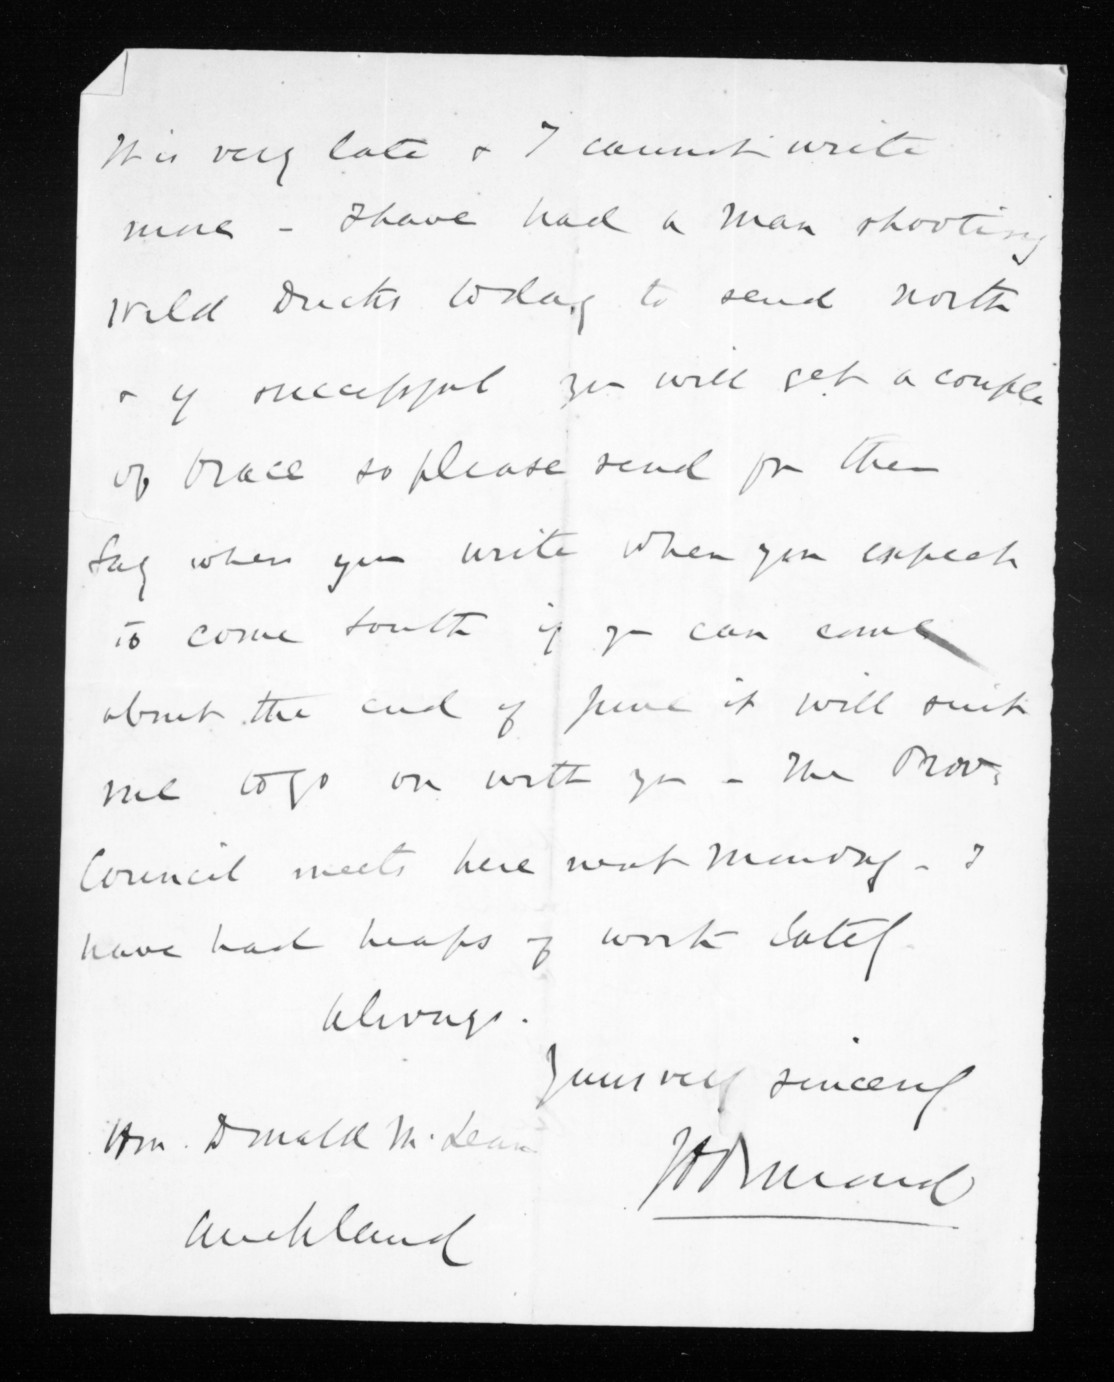 It is very late & I cannot write
more - I have had a man shooting
Wild Ducks today to send north
& if successful you will get a couple
of brace so please send for them
Say when you write when you expect
to come South if you can come
about the end of June it will suit
me to go on with you - The Prov:
Council meets here next Monday - I
have had heaps of work lately
Always.
Yours very sincerely
JD Ormond
Hon. Donald McLean
Auckland